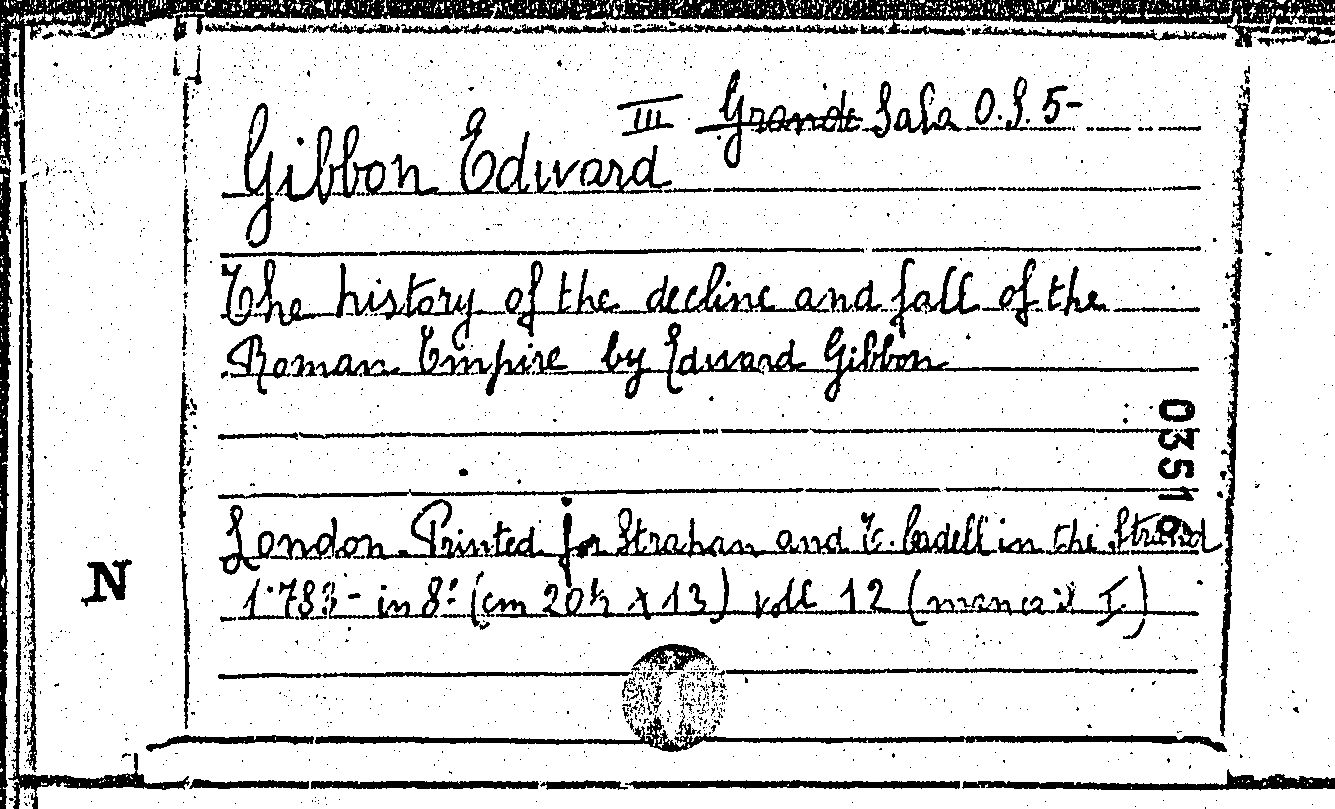 III Grande Sala O.S. 5-
Gibbon Edward
The history of the decline and fall of the
Roman Empire by Edward Gibbon
0351
London. Printed for Strahan and T. Cadell in the Strand
1783 - in 8º (cm 20½ x 13) voll 12 (manca il I)
N